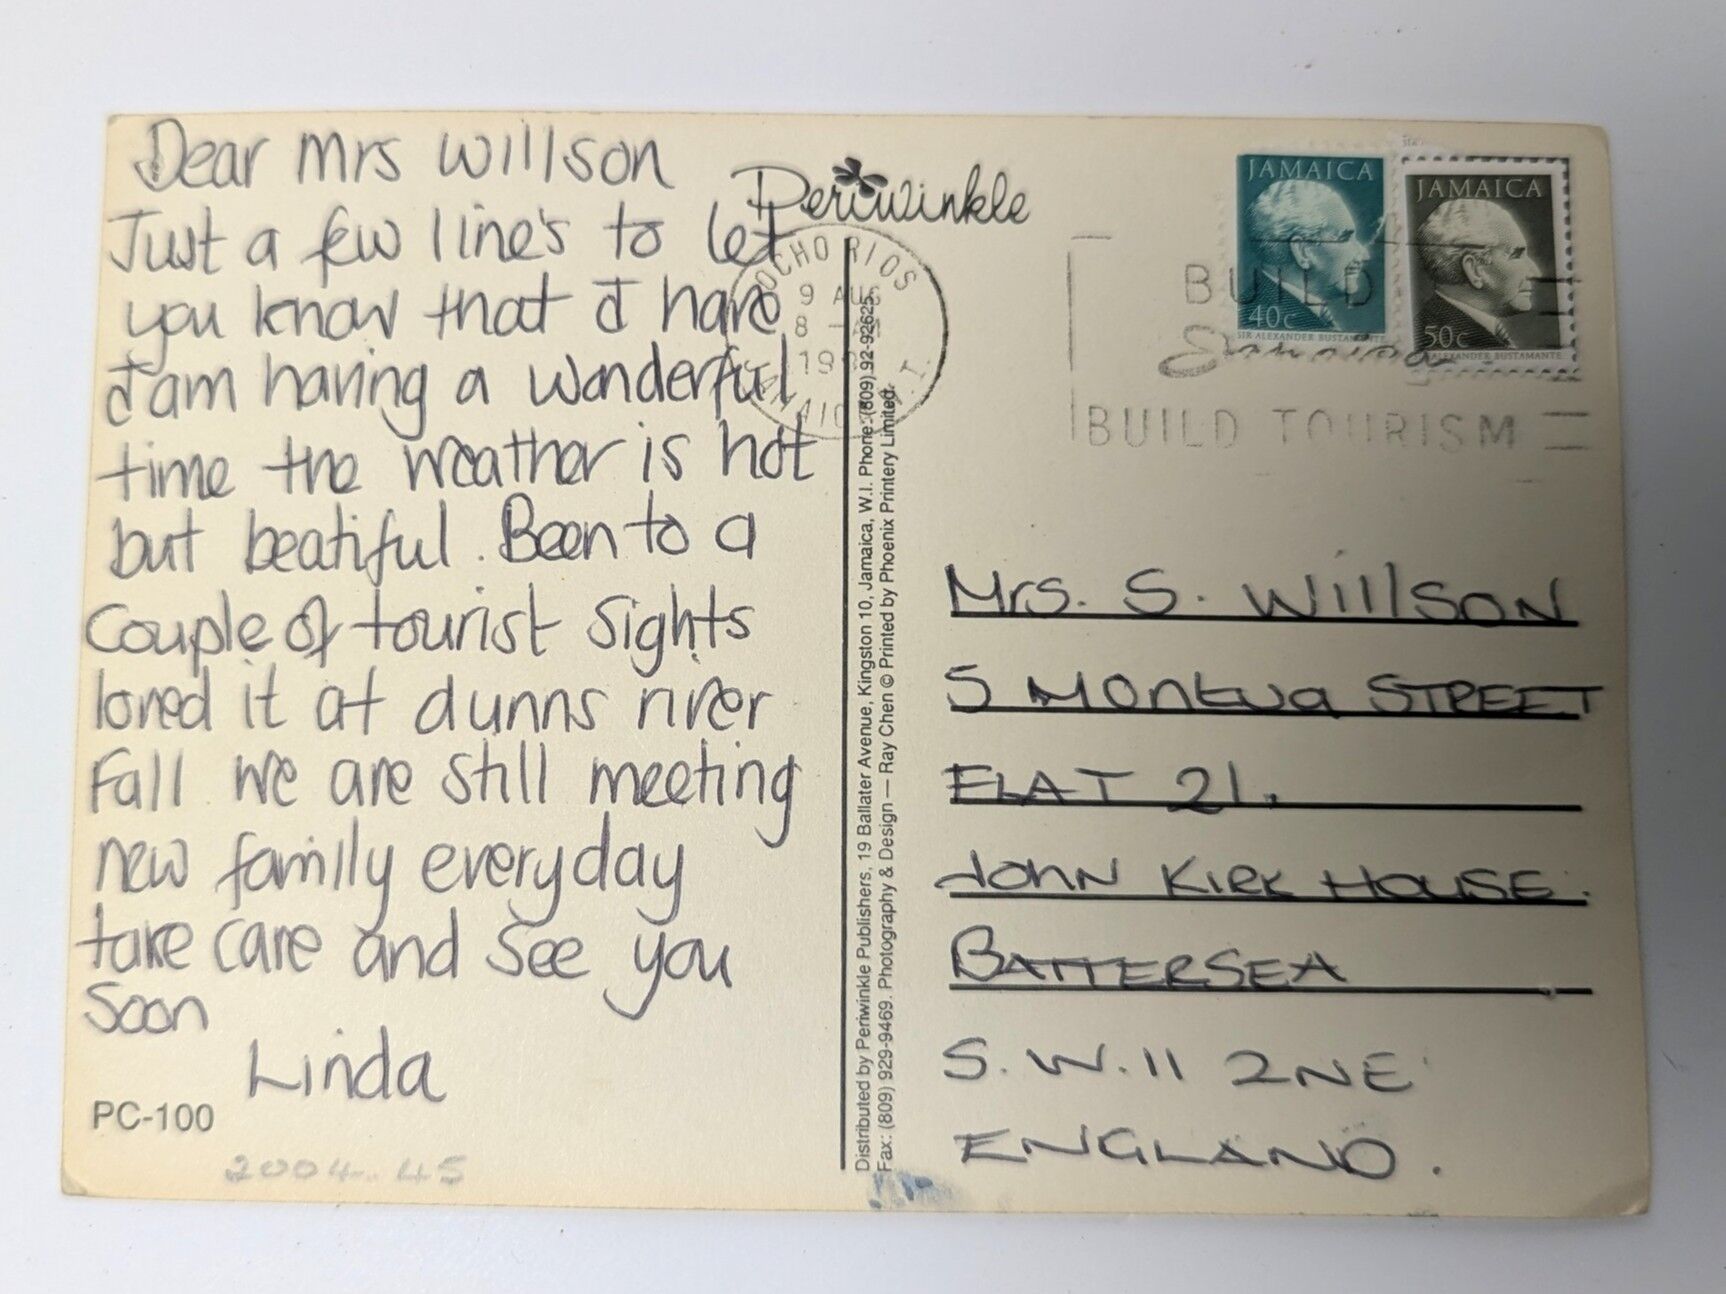 Dear Mrs Willson
Just a few line's to let
you know that I have
I am having a wonderful
time the weather is hot
but beatiful. Been to a
couple of tourist sights
loved it at dunns river
Fall we are still meeting
new family everyday
take care and see you
soon
Linda
PC-100
2004.45
Periwinkle
OCHO RIOS
9 AUG
8 -
19
Distributed by Periwinkle Publishers, 19 Ballater Avenue, Kingston 10, Jamaica, W.I. Phone: (809) 92-92625.
Fax: (809) 929-9469. Photography & Design — Ray Chen © Printed by Phoenix Printery Limited.
JAMAICA
40c
SIR ALEXANDER BUSTAMANTE
JAMAICA
50c
ALEXANDER BUSTAMANTE
BUILD
Jamaica
BUILD TOURISM
Mrs. S. Willson
FLAT 21.
JOHN KIRK HOUSE.
BATTERSEA
S.W.11 2NE
ENGLAND.